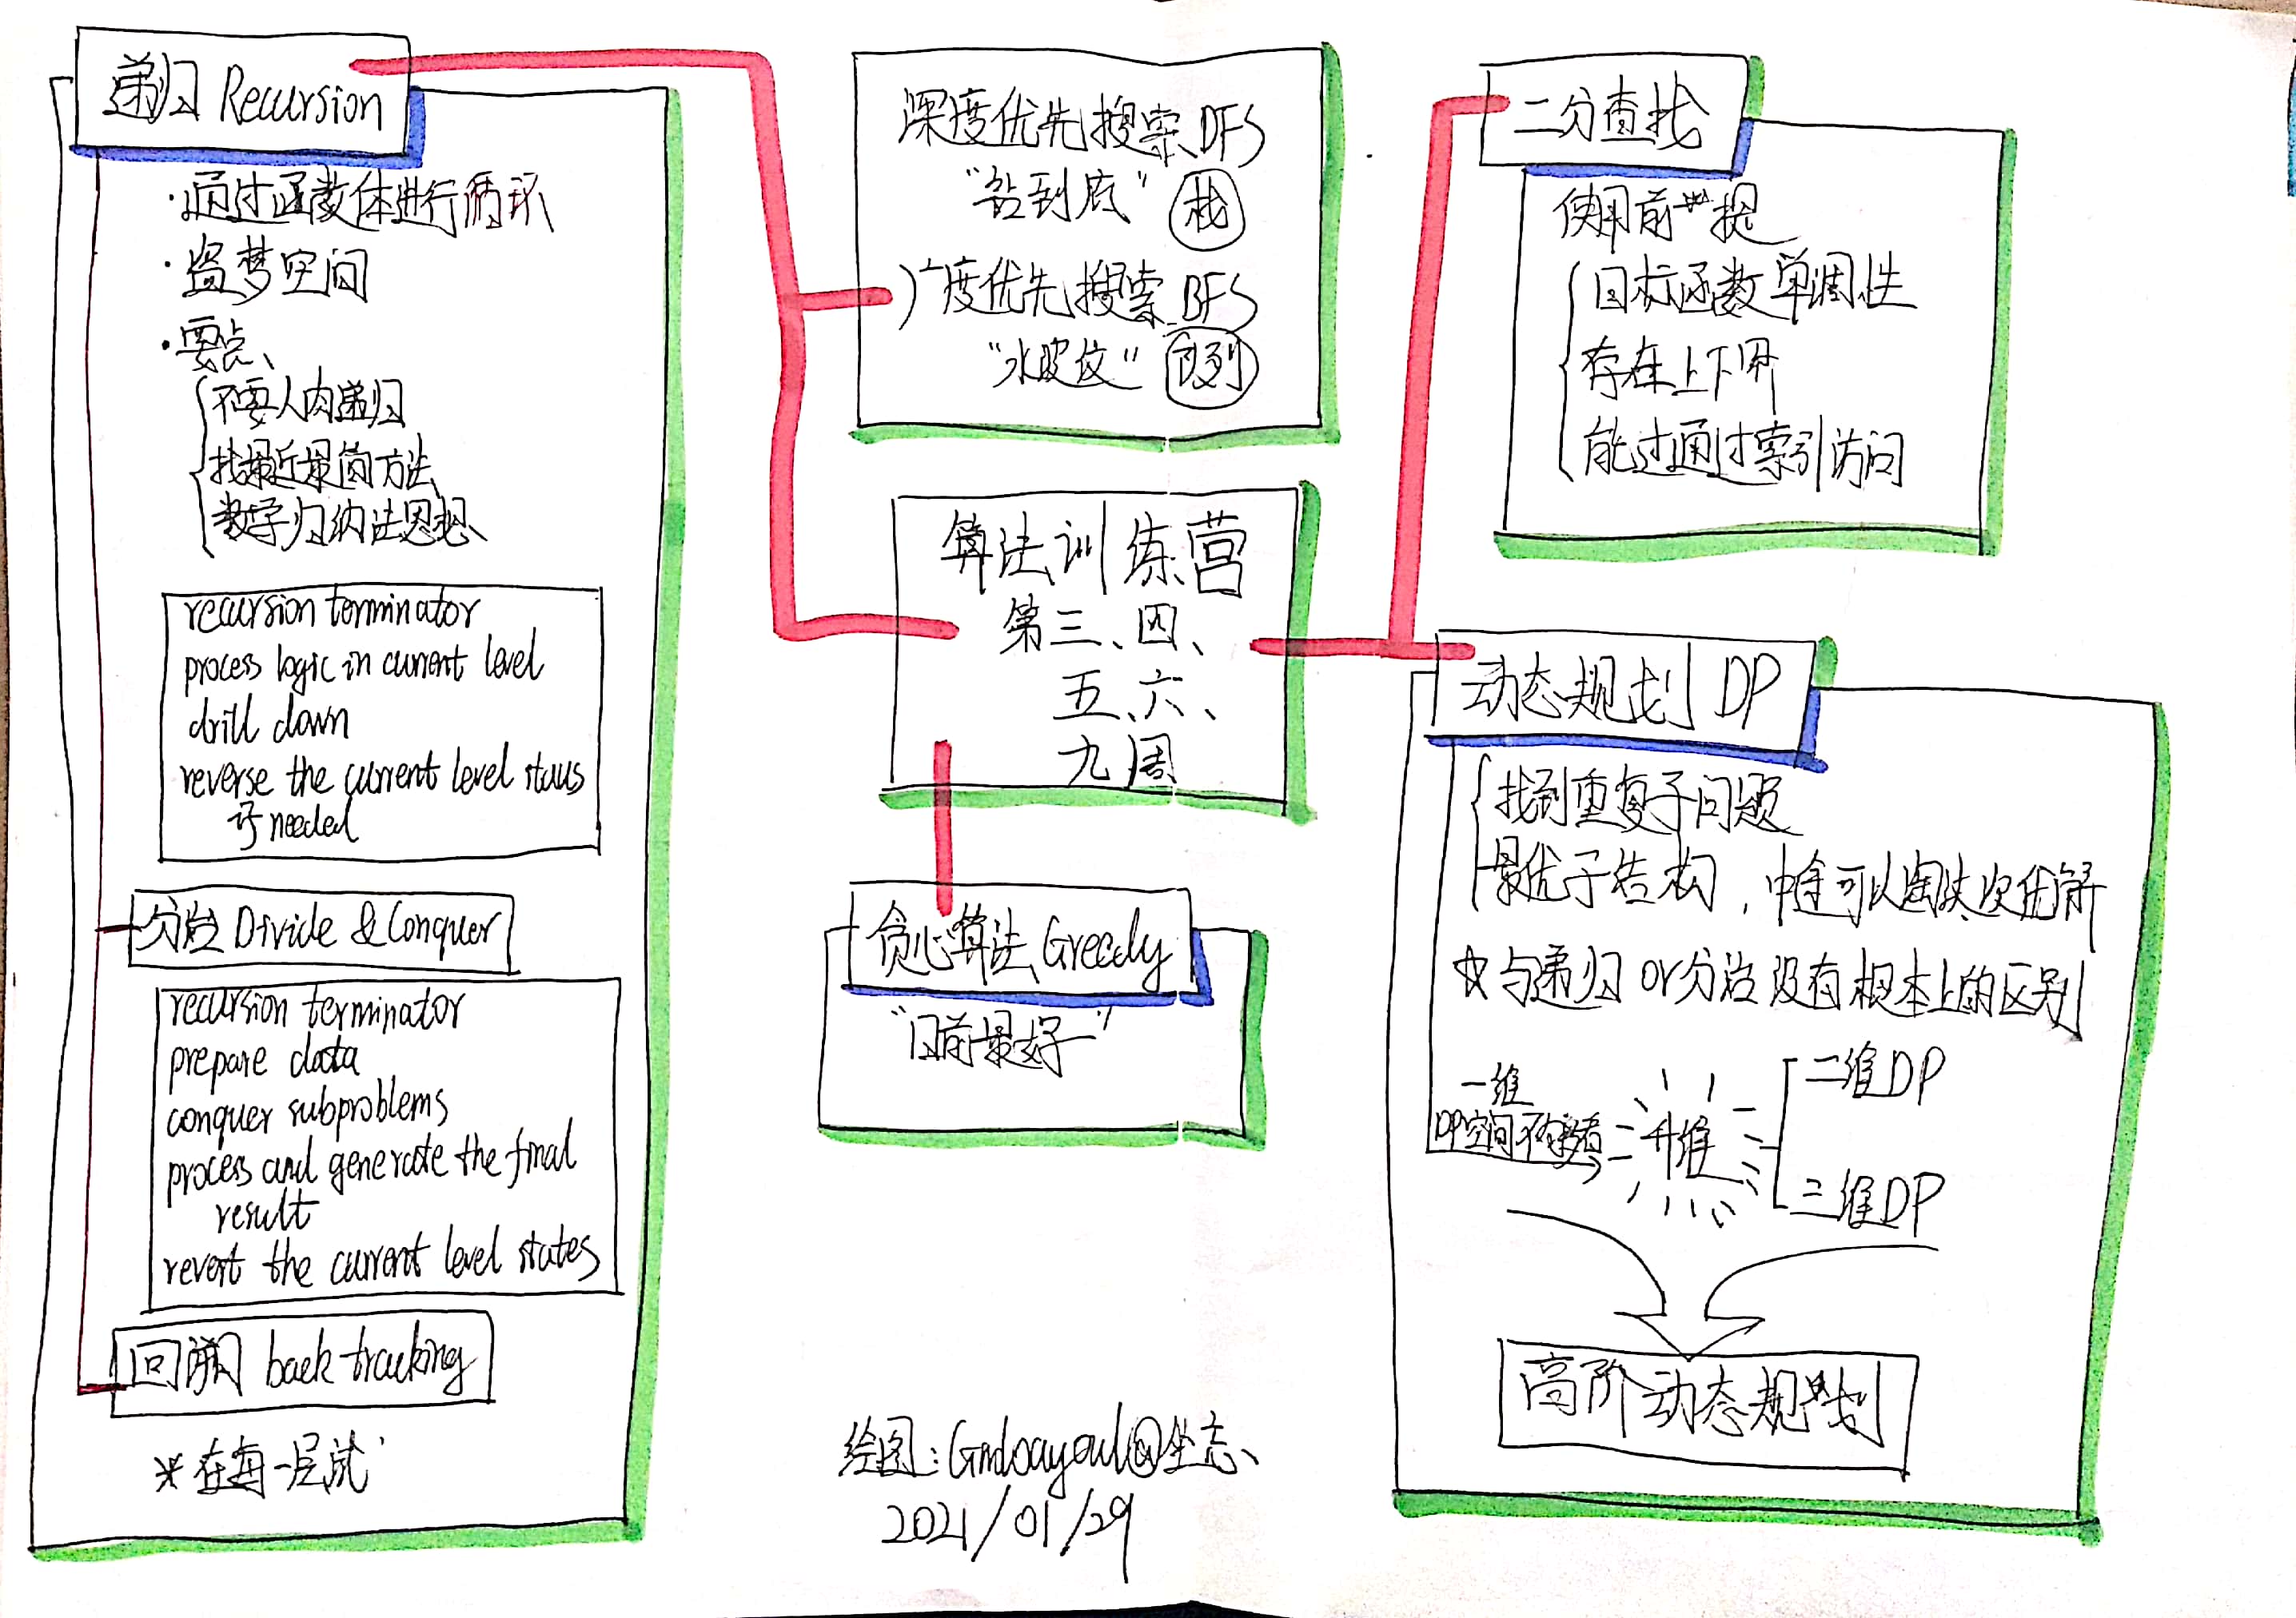 递归 Recursion
·通过函数体进行循环
·盗梦空间
·要点、
不要人肉递归
找最近最简方法
数学归纳法思想
recursion terminator
process logic in current level
drill down
reverse the current level staus
if needed
分治 Divide & Conquer
recursion terminator
prepare data
conquer subproblems
process and generate the final
result
revert the current level states
回溯 back tracking
*在每一层试
深度优先搜索 DFS
“钻到底” 栈
广度优先搜索 BFS
“水波纹” 队列
算法训练营
第三、四、
五、六、
九周
贪心算法 Greedy
“目前最好”
绘图：@坐忘、
2021/01/29
二分查找
使用前提
目标函数单调性
存在上下界
能过通过索引访问
动态规划 DP
找到重复子问题
最优子结构，中途可以淘汰次优解
☆与递归 or 分治 没有根本上的区别
一维
DP空间不够看
升维
二维DP
三维DP
高阶动态规划